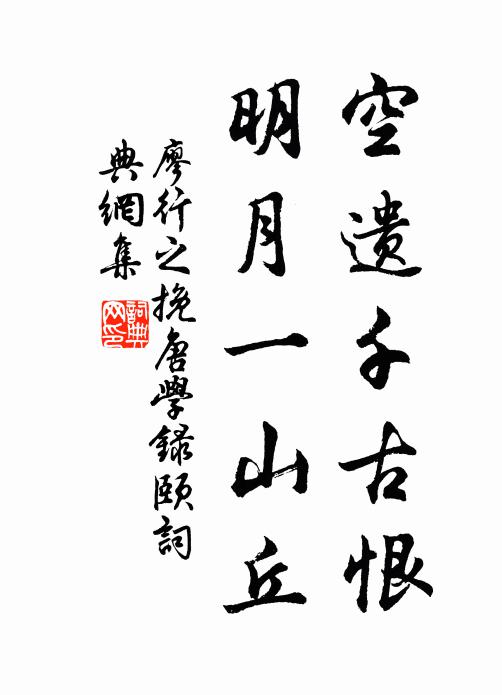 空遗千古恨
明月一山丘
廖行之挽唐學録頤詞
典網集
詞典
网印